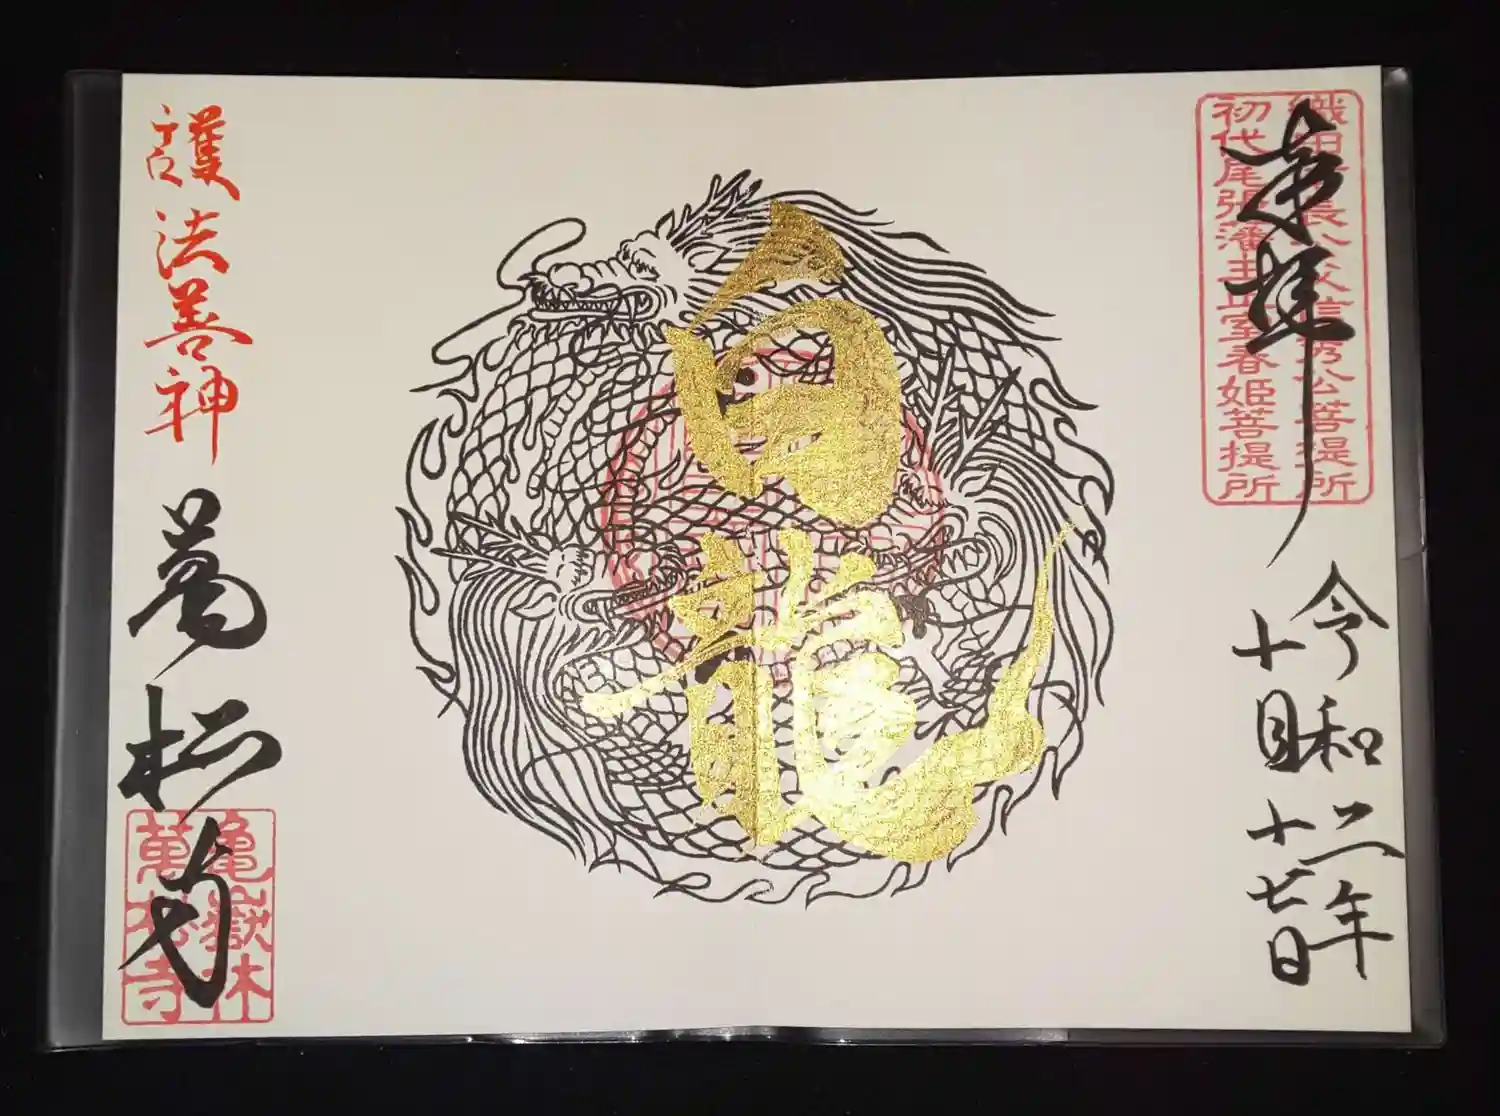 奉拝
織田信長公父信秀公菩提所
初代尾張藩主正室春姫菩提所
令和二年
十月十七日
白龍
護法善神
萬松寺
亀嶽林
萬松寺